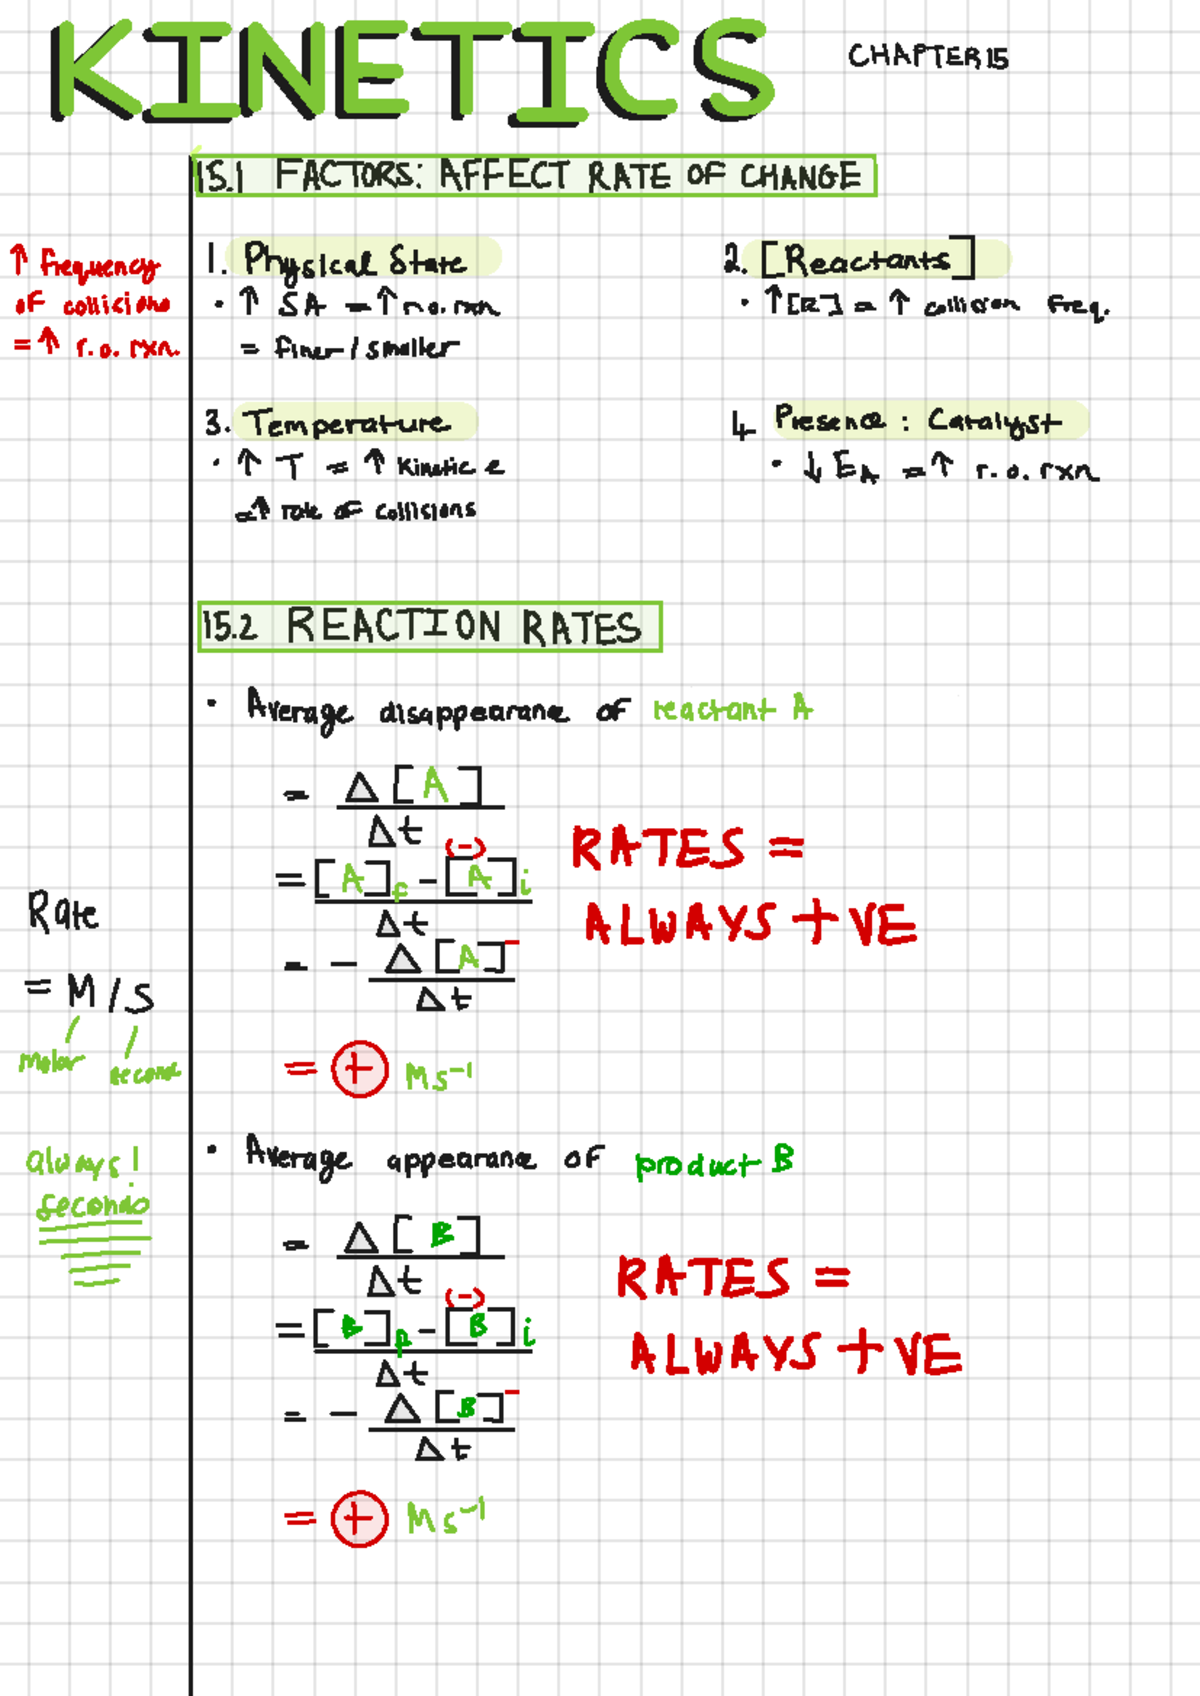 KINETICS
CHAPTER 15
15.1 FACTORS: AFFECT RATE OF CHANGE
↑ frequency
of collisions
= ↑ r.o. rxn.
1. Physical State
• ↑ SA = ↑ r.o. rxn
= finer / smaller
2. [Reactants]
• ↑ [R] = ↑ collision freq.
3. Temperature
• ↑ T = ↑ kinetic e
=↑ rate of collisions
4 Presence : Catalyst
• ↓ EA = ↑ r.o. rxn
15.2 REACTION RATES
• Average disappearance of reactant A
= Δ [A]
Δt
(-)
= [A]f - [A]i
Δt
= - Δ [A]⁻
Δt
= + Ms⁻¹
RATES =
ALWAYS +VE
Rate
= M/s
molar second
always!
seconds
• Average appearance of product B
= Δ [B]
Δt
(-)
= [B]f - [B]i
Δt
= - Δ [B]⁻
Δt
= + Ms⁻¹
RATES =
ALWAYS +VE